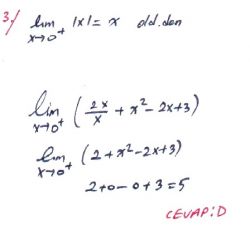 3-/ lim x→0⁺ |x| = x old.dan
lim x→0⁺ (2x/x + x² - 2x+3)
lim x→0⁺ (2+x²-2x+3)
2+0-0+3=5
CEVAP: D